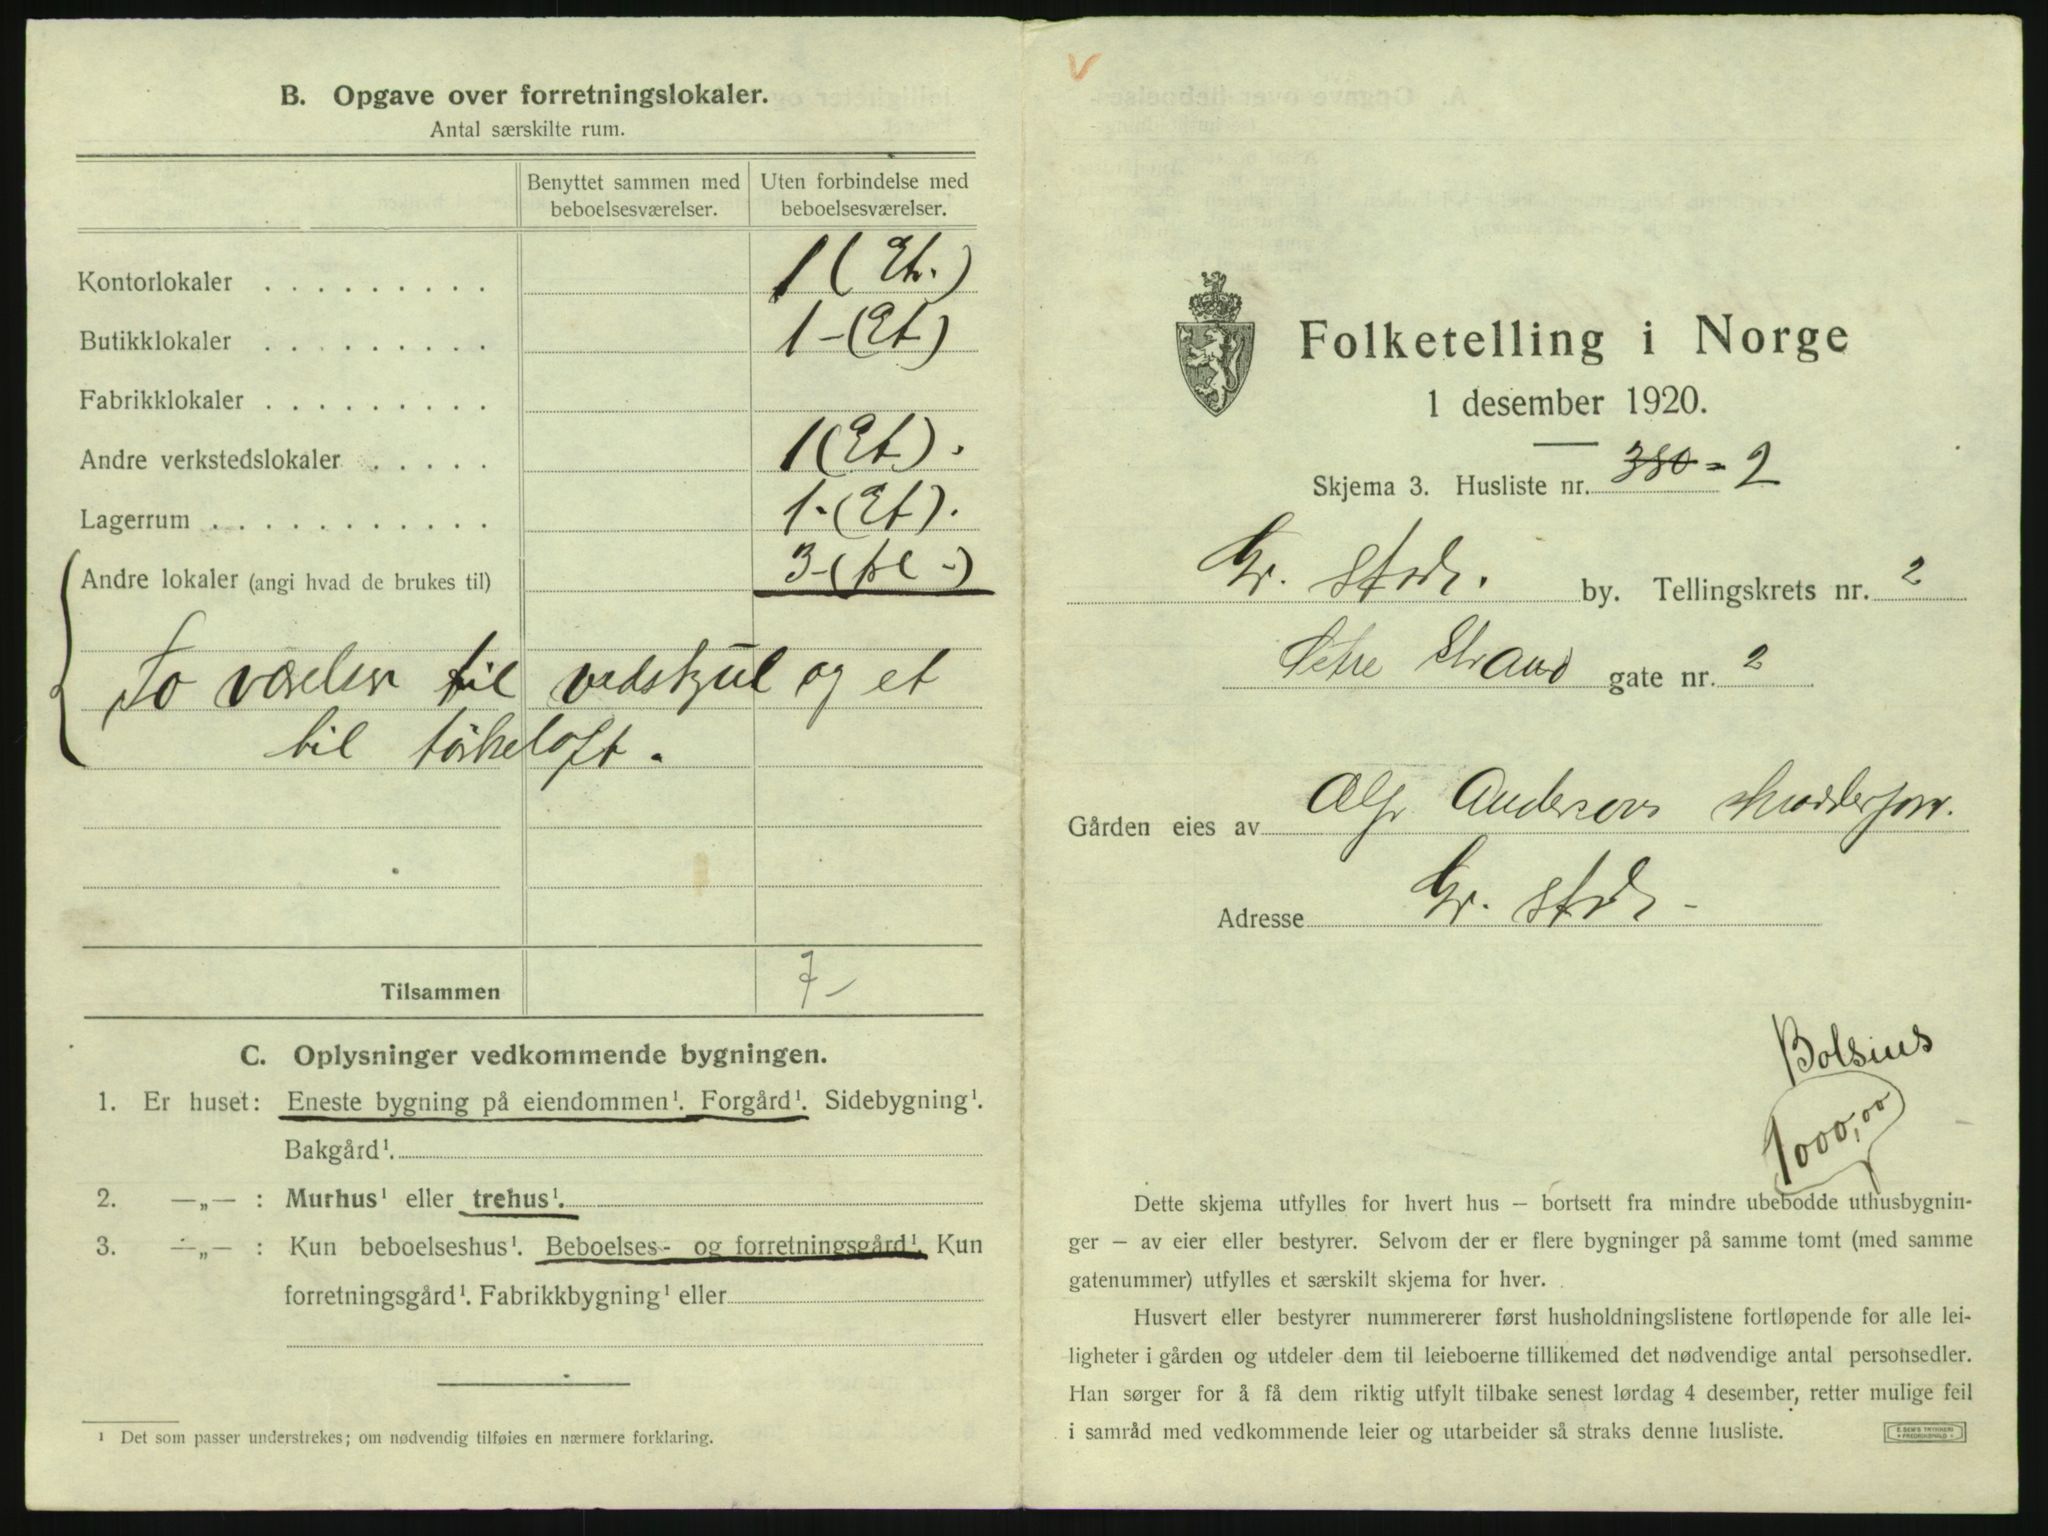 B. Opgave over forretningslokaler.
Antal særskilte rum.
Benyttet sammen med beboelsesværelser.
Uten forbindelse med beboelsesværelser.
Kontorlokaler . . . . . . . . . 1 (Et.)
Butikklokaler . . . . . . . . . 1 - (Et)
Fabrikklokaler . . . . . . . . .
Andre verkstedslokaler . . . . . 1 (Et).
Lagerrum . . . . . . . . . . . . 1 - (Et).
Andre lokaler (angi hvad de brukes til) 3 -
To værelser til vedskjul og et
til tørkeloft.
Tilsammen 7 -
C. Oplysninger vedkommende bygningen.
1. Er huset: Eneste bygning på eiendommen¹. Forgård¹. Sidebygning¹.
Bakgård¹.
2. —„— : Murhus¹ eller trehus¹.
3. —„— : Kun beboelseshus¹. Beboelses- og forretningsgård¹. Kun
forretningsgård¹. Fabrikkbygning¹ eller
¹ Det som passer understrekes; om nødvendig tilføies en nærmere forklaring.
V
Folketelling i Norge
1 desember 1920.
Skjema 3. Husliste nr. 380 = 2
Gr. by. Tellingskrets nr. 2
Strand gate nr. 2
Gården eies av Alf Anderson
Adresse Gr.
Bolsius
1000,00
Dette skjema utfylles for hvert hus – bortsett fra mindre ubebodde uthusbygnin-
ger – av eier eller bestyrer. Selvom der er flere bygninger på samme tomt (med samme
gatenummer) utfylles et særskilt skjema for hver.
Husvert eller bestyrer nummererer først husholdningslistene fortløpende for alle lei-
ligheter i gården og utdeler dem til leieboerne tillikemed det nødvendige antal personsedler.
Han sørger for å få dem riktig utfylt tilbake senest lørdag 4 desember, retter mulige feil
i samråd med vedkommende leier og utarbeider så straks denne husliste.
E. SEM'S TRYKKERI
FREDRIKSHALD